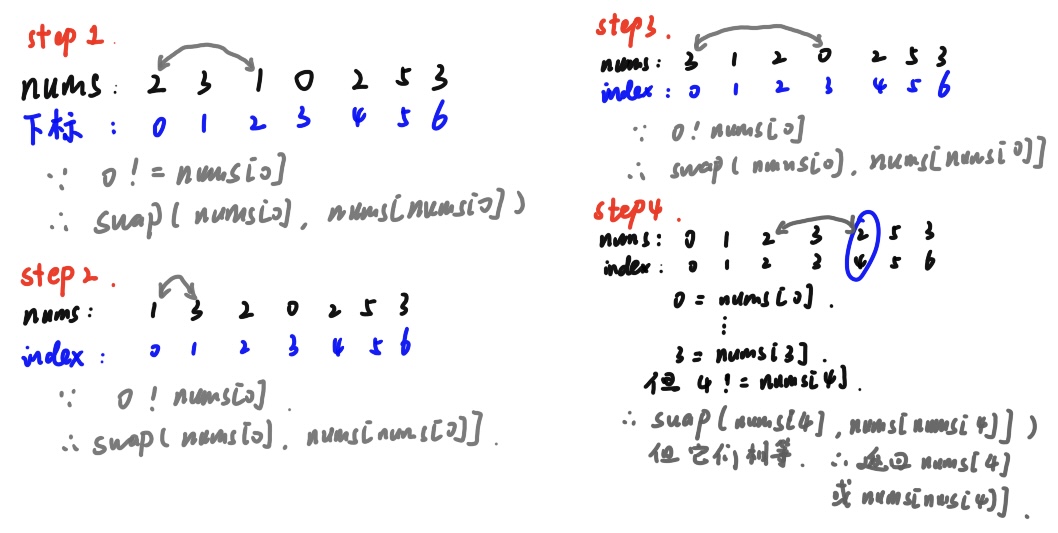 step 1.
nums: 2 3 1 0 2 5 3
下标: 0 1 2 3 4 5 6
∵ 0 != nums[0]
∴ swap( nums[0], nums[nums[0])
step 2.
nums: 1 3 2 0 2 5 3
index: 0 1 2 3 4 5 6
∵ 0 ! nums[0].
∴ swap( nums[0], nums[nums[0]].
step3.
nums: 3 1 2 0 2 5 3
index: 0 1 2 3 4 5 6
∵ 0! nums[0]
∴ swap( nums[0], nums[nums[0]]
step4.
nums: 0 1 2 3 2 5 3
index: 0 1 2 3 4 5 6
0 = nums[0].
⋮
3 = nums[3].
但 4 != nums[4].
∴ swap( nums[4], nums[nums[4]])
但它们相等. ∴ 返回 nums[4]
或 nums[nums[4)].